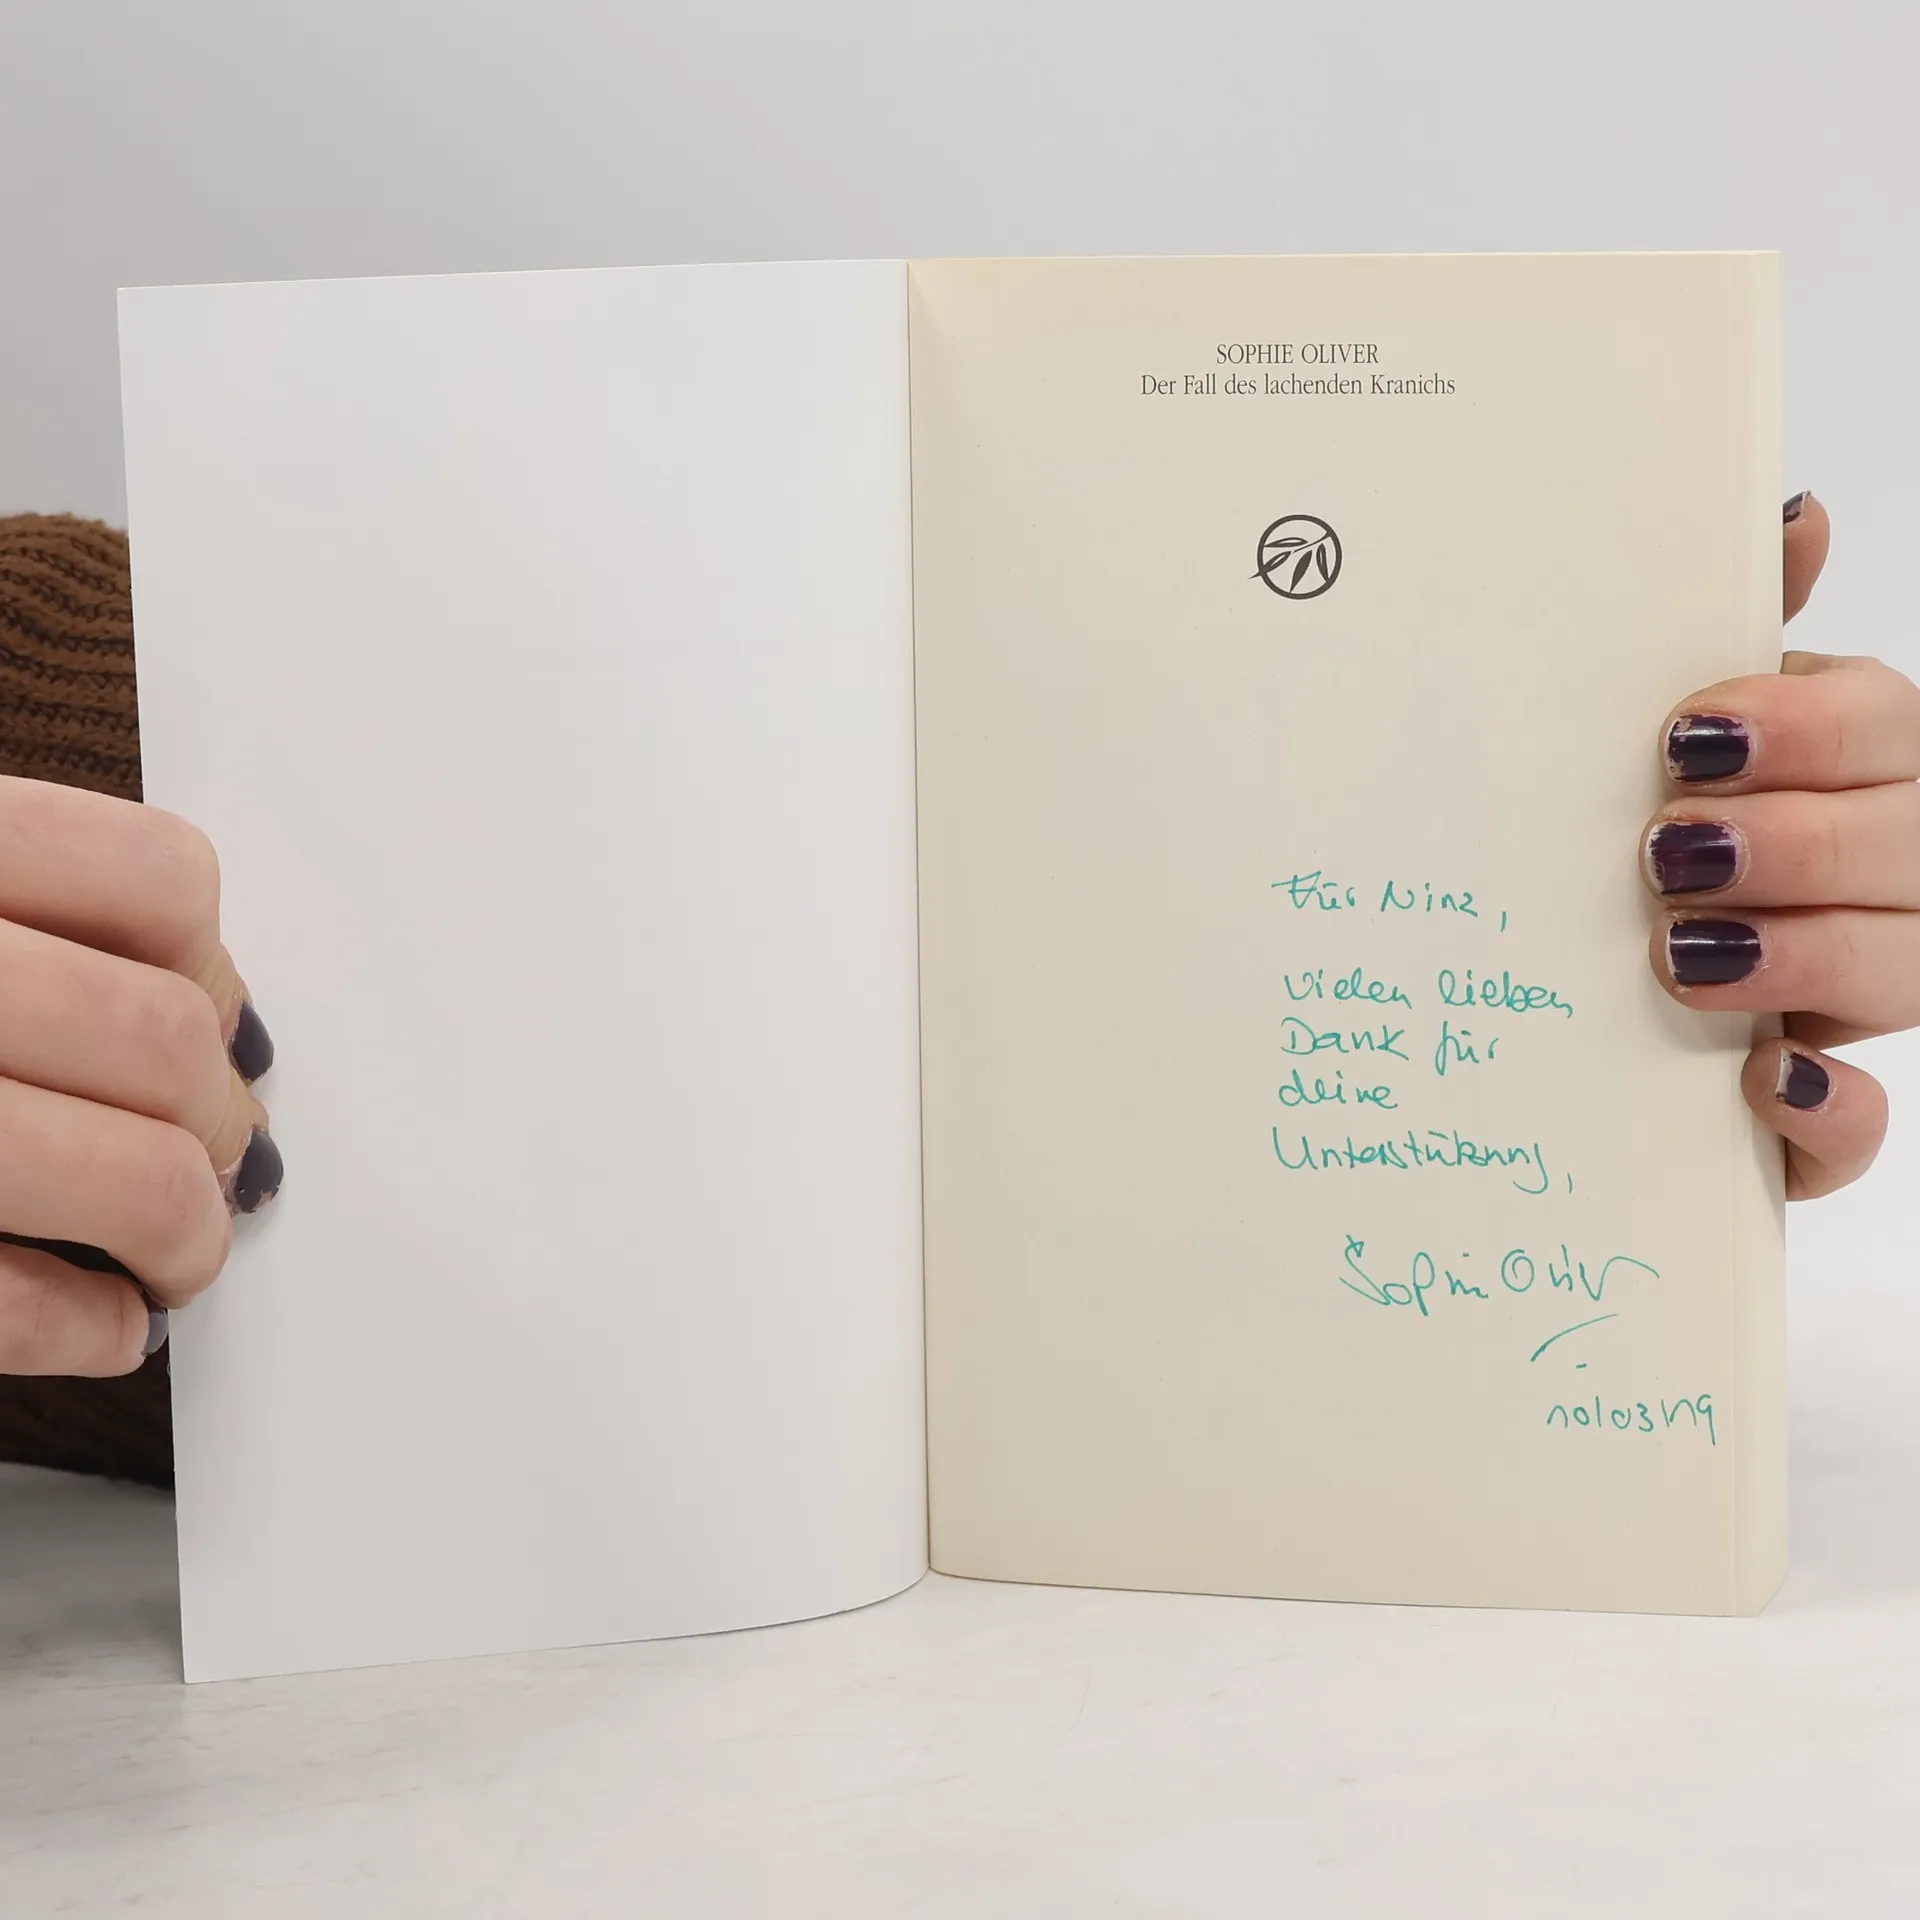 SOPHIE OLIVER
Der Fall des lachenden Kranichs
Für Nina,
vielen lieben
Dank für
deine
Unterstützung,
Sophie Oliver
10/03/19